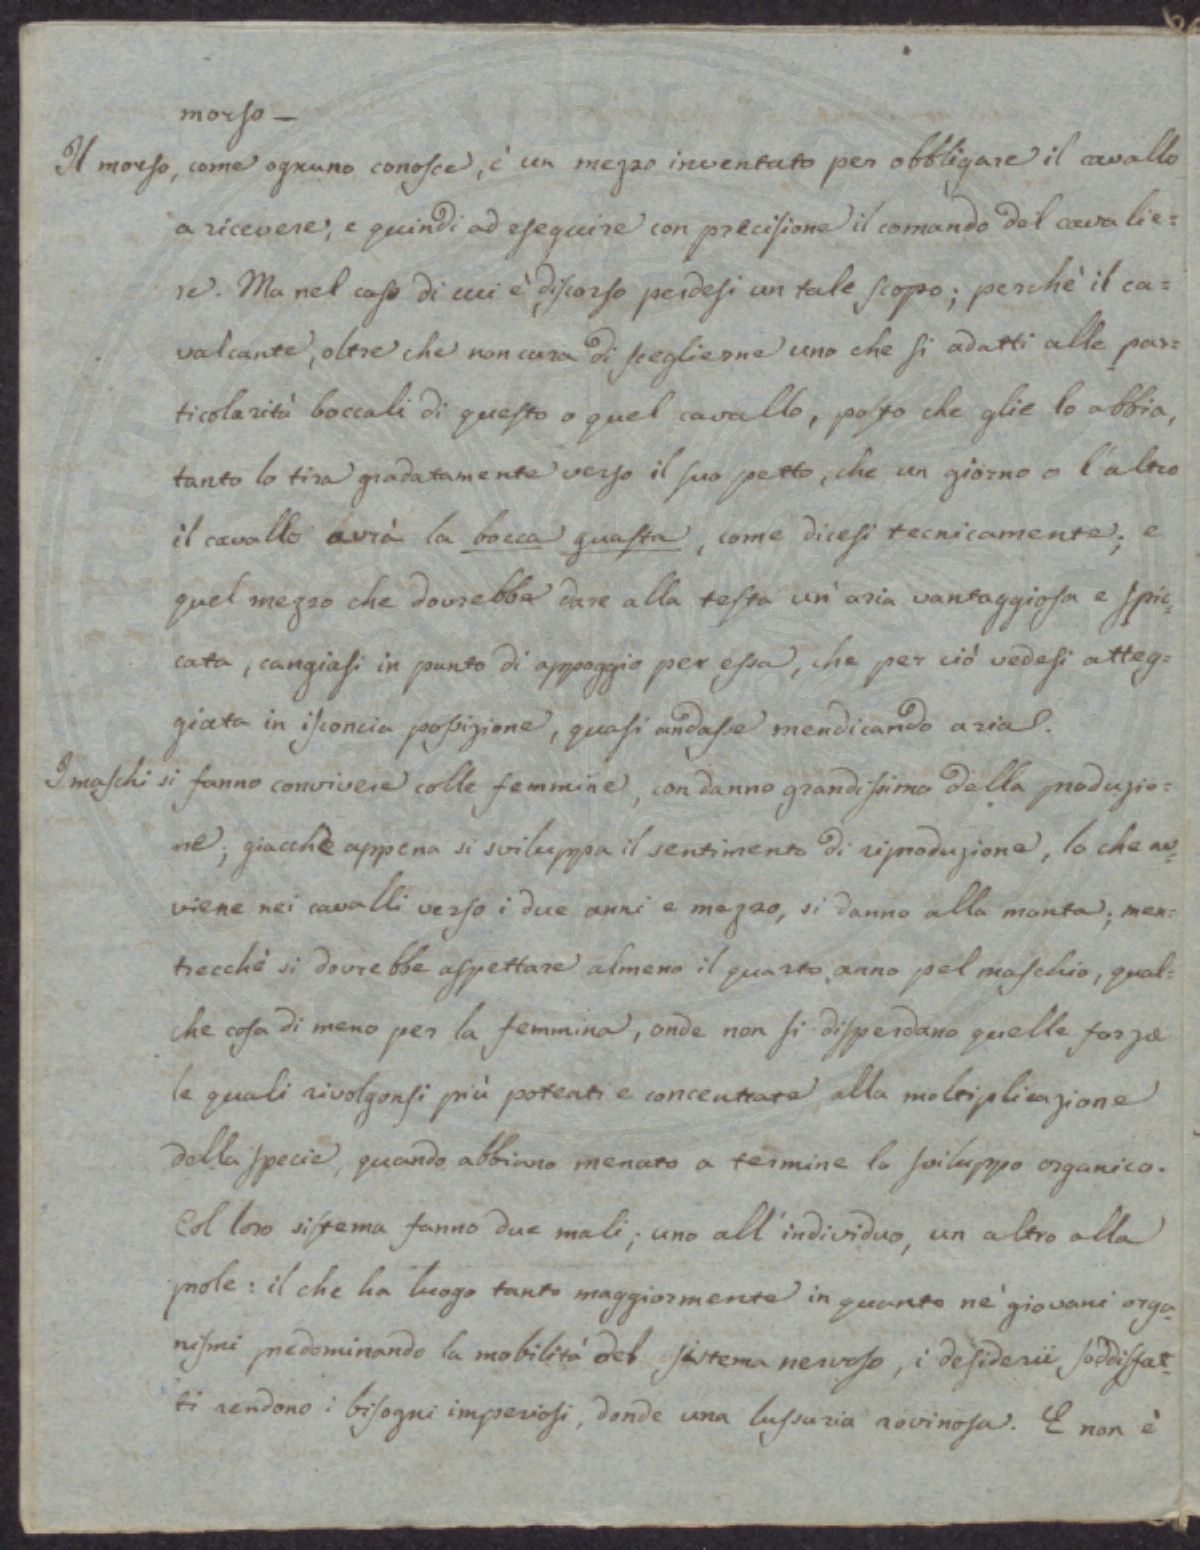 morso —
Il morso, come ognuno conosce, è un mezzo inventato per obbligare il cavallo
a ricevere, e quindi ad eseguire con precisione il comando del cavalie=
re. Ma nel caso di cui è discorso perdesi un tale scopo; perchè il ca=
valcante, oltre che non cura di sceglierne uno che si adatti alle par=
ticolarità boccali di questo o quel cavallo, posto che glie lo abbia,
tanto lo tira gradatamente verso il suo petto, che un giorno o l'altro
il cavallo avrà la bocca guasta, come dicesi tecnicamente; e
quel mezzo che dovrebbe dare alla testa un' aria vantaggiosa e spic=
cata, cangiasi in punto di appoggio per essa, che per ciò vedesi atteg=
giata in isconcia posizione, quasi andasse mendicando aria.
I maschi si fanno convivere colle femmine, con danno grandissimo della produzio=
ne; giacchè appena si sviluppa il sentimento di riproduzione, lo che av=
viene nei cavalli verso i due anni e mezzo, si danno alla monta; men=
trecchè si dovrebbe aspettare almeno il quarto anno pel maschio, qual=
che cosa di meno per la femmina, onde non si disperdano quelle forze
le quali rivolgonsi più potenti e concentrate alla moltiplicazione
della specie, quando abbiano menato a termine lo sviluppo organico.
Col loro sistema fanno due mali; uno all' individuo, un altro alla
prole: il che ha luogo tanto maggiormente in quanto ne' giovani orga=
nismi predominando la mobilità del sistema nervoso, i desiderii soddisfat=
ti rendono i bisogni imperiosi, donde una lussuria rovinosa. E non è